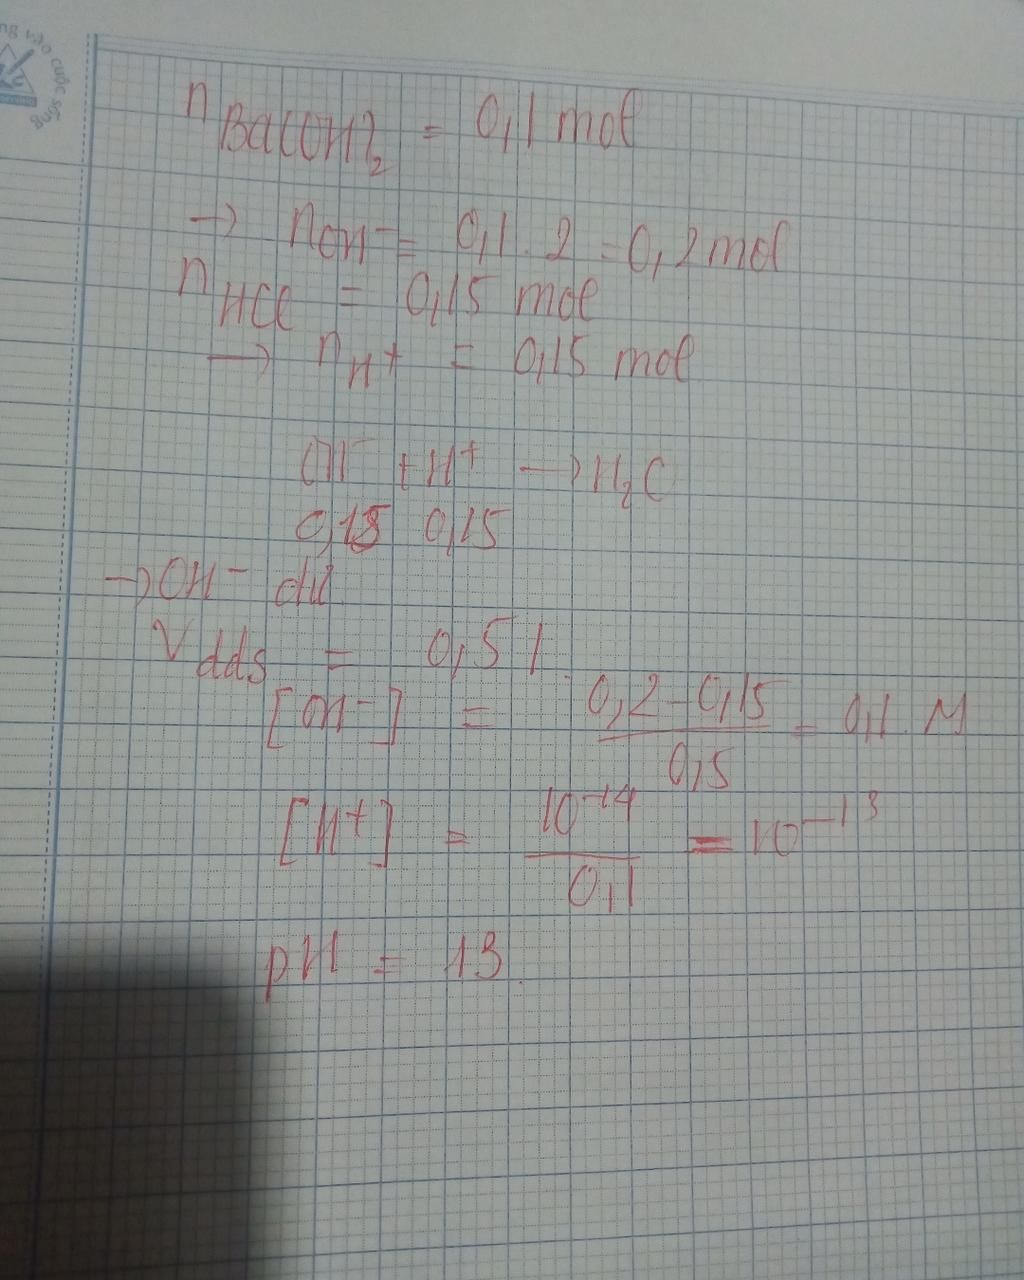 vào cuộc sống
n Ba(OH)₂ = 0,1 mol
→ nOH⁻ = 0,1 . 2 = 0,2 mol
nHCl = 0,15 mol
→ nH⁺ = 0,15 mol
OH⁻ + H⁺ → H₂O
0,15 0,15
→ OH⁻ dư
Vdds = 0,5 l
[OH⁻] = (0,2 - 0,15)/0,5 = 0,1 M
[H⁺] = 10⁻¹⁴/0,1 = 10⁻¹³
pH = 13.